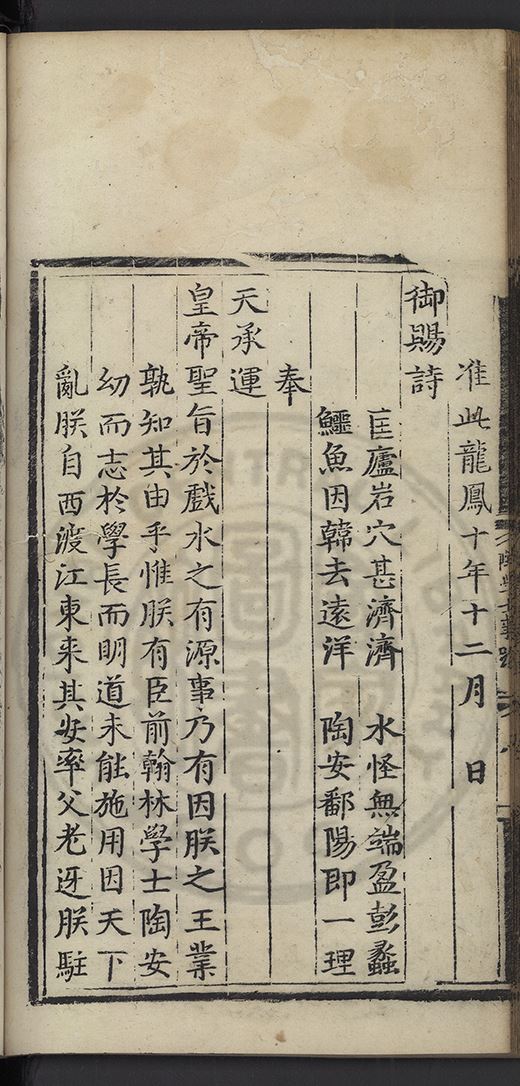 准此龍鳳十年十二月　日
御賜詩
匡廬岩穴甚濟濟　水怪無端盈彭蠡
鱷魚因韓去遠洋　陶安鄱陽即一理
奉
天承運
皇帝聖旨於戲水之有源事乃有因朕之王業
孰知其由乎惟朕有臣前翰林學士陶安
幼而志於學長而明道未能施用因天下
亂朕自西渡江東来其安率父老迓朕駐